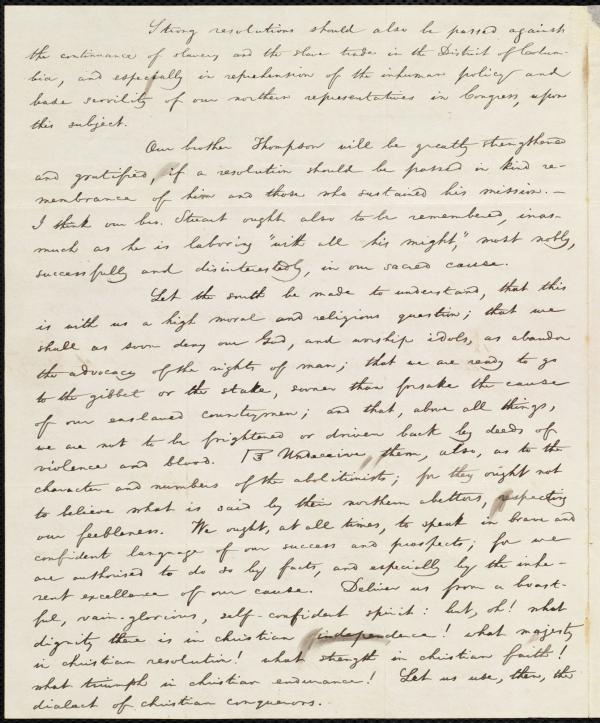 Strong resolutions should also be passed against
the continuance of slavery and the slave trade in the District of Colum-
bia, and especially in reprehension of the inhuman policy and
base servility of our northern representatives in Congress, upon
this subject.
Our brother Thompson will be greatly strengthened
and gratified, if a resolution should be passed in kind re-
membrance of him and those who sustained his mission. —
I think our bro. Stuart ought also to be remembered, inas-
much as he is laboring "with all his might," most nobly,
successfully and disinterestedly, in our sacred cause.
Let the south be made to understand, that this
is with us a high moral and religious question; that we
shall as soon deny our God, and worship idols, as abandon
the advocacy of the rights of man; that we are ready to go
to the gibbet or the stake, sooner than forsake the cause
of our enslaved countrymen; and that, above all things,
we are not to be frightened or driven back by deeds of
violence and blood. ☞ Undeceive them, also, as to the
character and numbers of the abolitionists; for they ought not
to believe what is said by their northern abettors, respecting
our feebleness. We ought, at all times, to speak in brave and
confident language of our success and prospects; for we
are authorised to do so by facts, and especially by the inhe-
rent excellence of our cause. Deliver us from a boast-
ful, vain-glorious, self-confident spirit: but, oh! what
dignity there is in christian independence! what majesty
in christian resolution! what strength in christian faith!
what triumph in christian endurance! Let us use, then, the
dialect of christian conquerors.